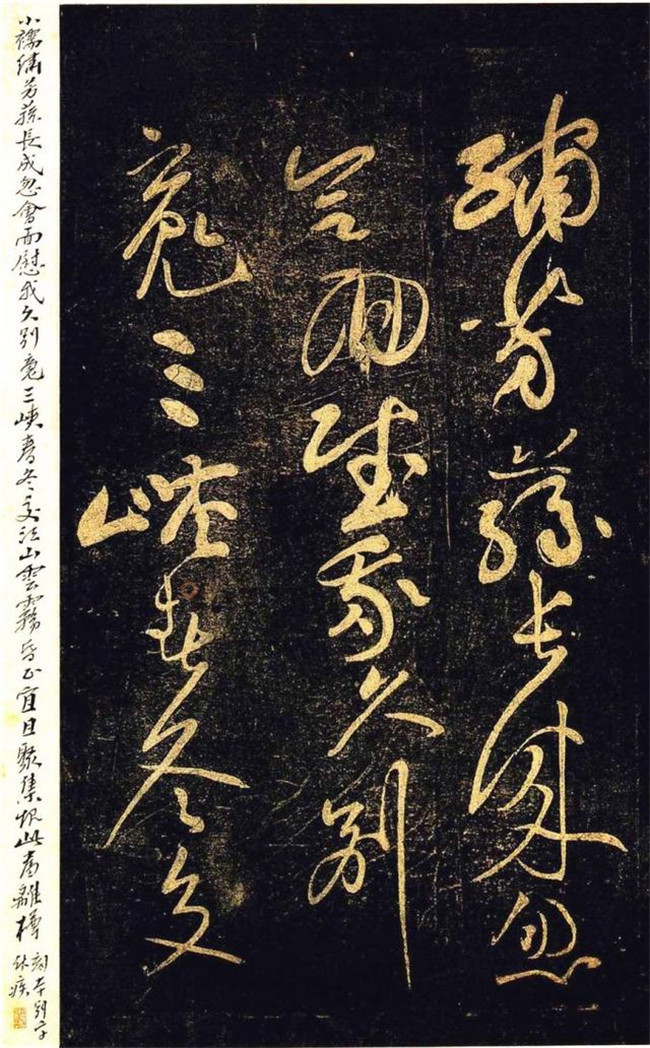 繡芳蓀長成忽
會面慰我久別
魂三峽春冬交
小襦繡芳蓀長成忽會面慰我久別魂三峽春冬交江山雲霧昏正宜且聚集恨此當離樽
本別字
作疾